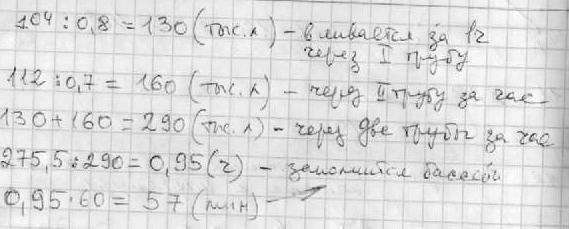 104 : 0,8 = 130 (тыс. л) – вливается за 1ч
через I трубу
112 : 0,7 = 160 (тыс. л) – через II трубу за час
130 + 160 = 290 (тыс. л) – через две трубы за час
275,5 : 290 = 0,95 (ч) – заполнится бассейн
0,95 · 60 = 57 (мин) –